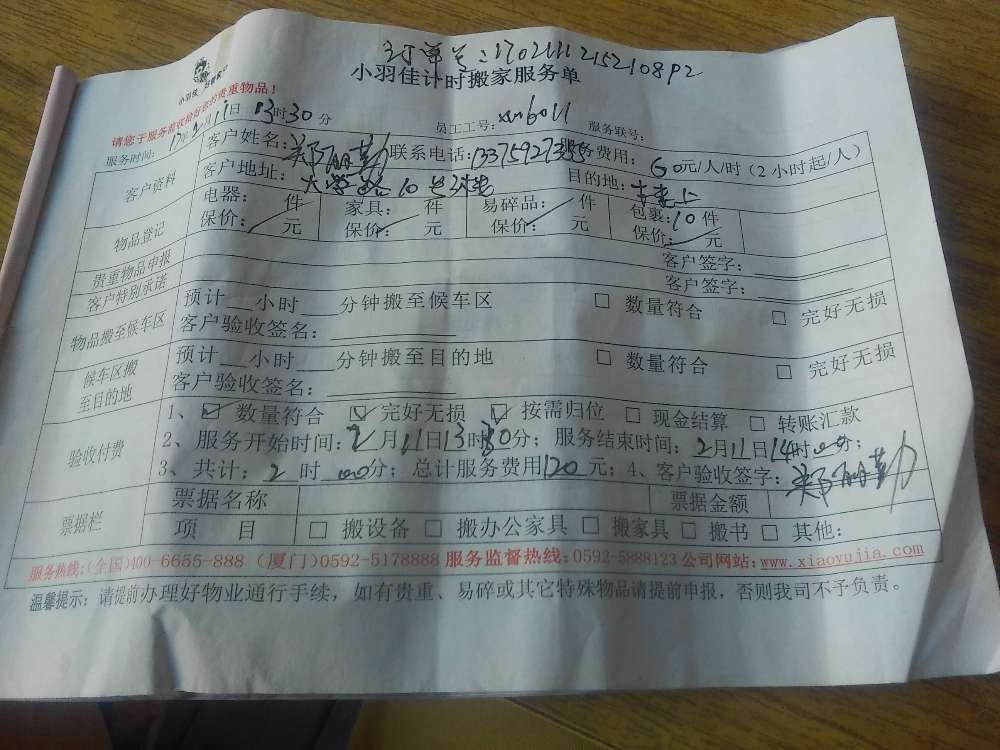 订单号：17021112152108P2
小羽佳计时搬家服务单
请您于服务前收拾好您的贵重物品！
服务时间：17年2月11日13时30分 员工工号：xm6011 服务联号：
客户资料 客户姓名：郑丽勤 联系电话： 服务费用：60元/人/时（2小时起/人）
客户地址：大学路10号 目的地：
物品登记 电器： 件 家具： 件 易碎品： 件 包裹：10件
保价： 元 保价： 元 保价： 元 保价： 元
贵重物品申报 客户签字：
客户特别承诺 客户签字：
物品搬至候车区 预计 小时 分钟搬至候车区 □ 数量符合 □ 完好无损
客户验收签名：
候车区搬至目的地 预计 小时 分钟搬至目的地 □ 数量符合 □ 完好无损
客户验收签名：
验收付费 1、☑ 数量符合 ☑ 完好无损 ☑ 按需归位 □ 现金结算 □ 转账汇款
2、服务开始时间：2月11日13时30分；服务结束时间：2月11日14时00分；
3、共计：2时00分；总计服务费用120元；4、客户验收签字：郑丽勤
票据栏 票据名称 票据金额
项 目 □ 搬设备 □ 搬办公家具 □ 搬家具 □ 搬书 □ 其他：
服务热线：(全国)400-6655-888 (厦门)0592-5178888 服务监督热线：0592-5888123 公司网站：www.xiaoyujia.com
温馨提示：请提前办理好物业通行手续，如有贵重、易碎或其它特殊物品请提前申报，否则我司不予负责。